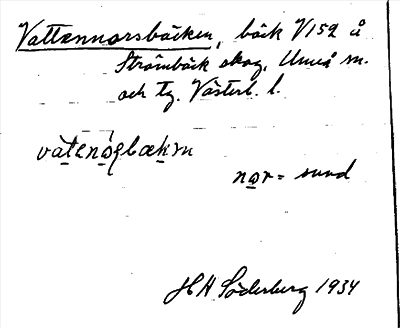 Vattennorsbäcken, bäck V152 å
Strömbäck skog, Umeå sn.
och tg. Västerb. l.
vàtenǫṣbækm
nǫr = sund
H H Söderberg 1934